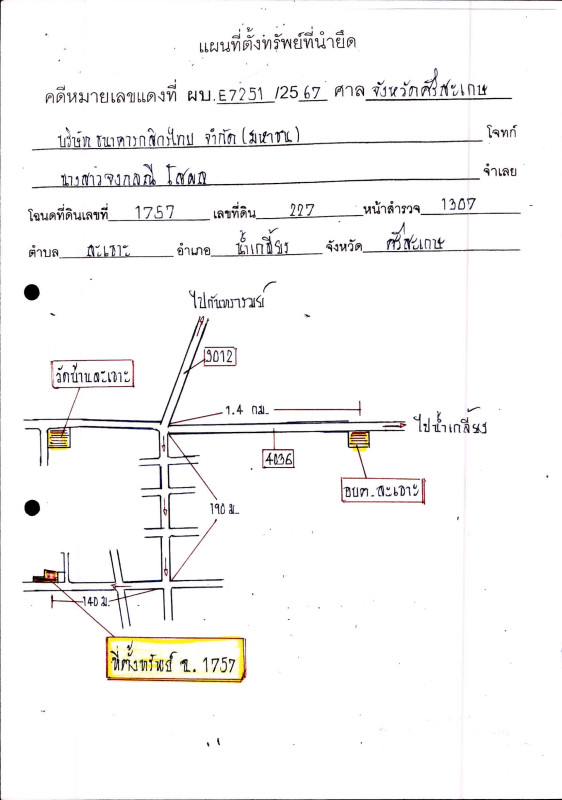 แผนที่ตั้งทรัพย์ที่นำยึด
คดีหมายเลขแดงที่ ผบ.E7251 /2567 ศาล จังหวัดศรีสะเกษ
บริษัท ธนาคารกสิกรไทย จำกัด (มหาชน) โจทก์
นางสาวจงกลณี โสผล จำเลย
โฉนดที่ดินเลขที่ 1757 เลขที่ดิน 227 หน้าสำรวจ 1307
ตำบล ละเอาะ อำเภอ น้ำเกลี้ยง จังหวัด ศรีสะเกษ
ไปกันทรารมย์
3012
วัดบ้านละเอาะ
1.4 กม.
ไปน้ำเกลี้ยง
4036
อบต.ละเอาะ
190 ม.
140 ม.
ที่ตั้งทรัพย์ ฉ. 1757